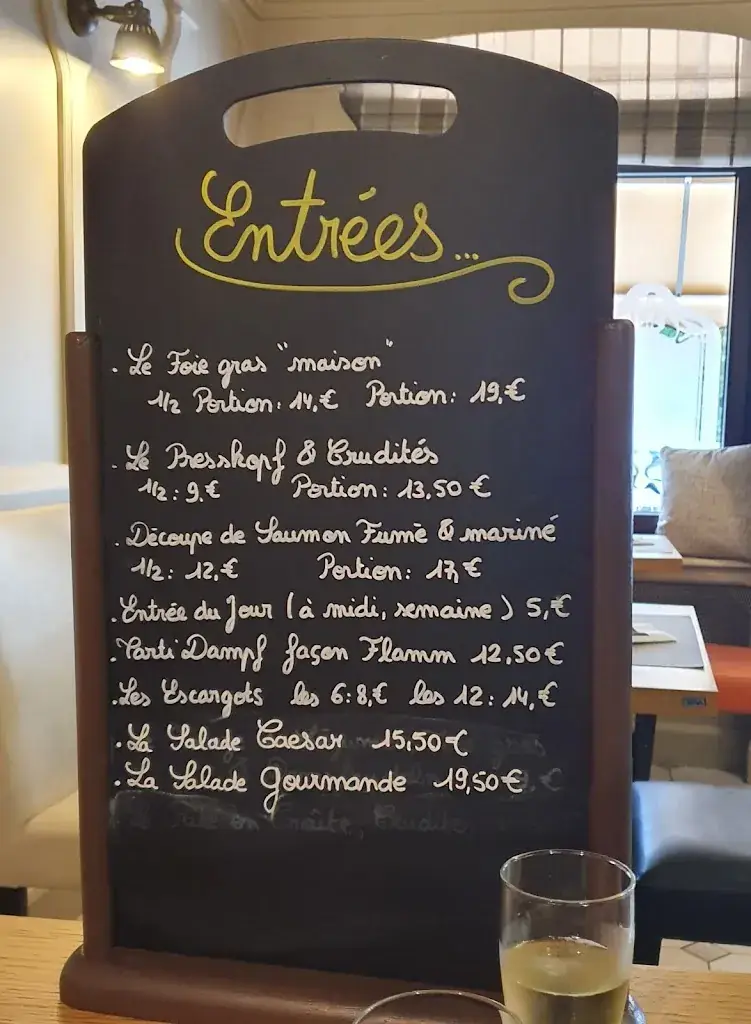 Entrées...
. Le Foie gras "maison"
1/2 Portion: 14,€ Portion: 19,€
. Le Presskopf & Crudités
1/2: 9,€ Portion: 13,50 €
. Découpe de Saumon Fumè & mariné
1/2: 12,€ Portion: 17,€
. Entrée du Jour (à midi, semaine) 5,€
. Tarti Dampf façon Flamm 12,50€
. Les Escargots les 6: 8,€ les 12: 14,€
. La Salade Caesar 15,50€
. La Salade Gourmande 19,50€